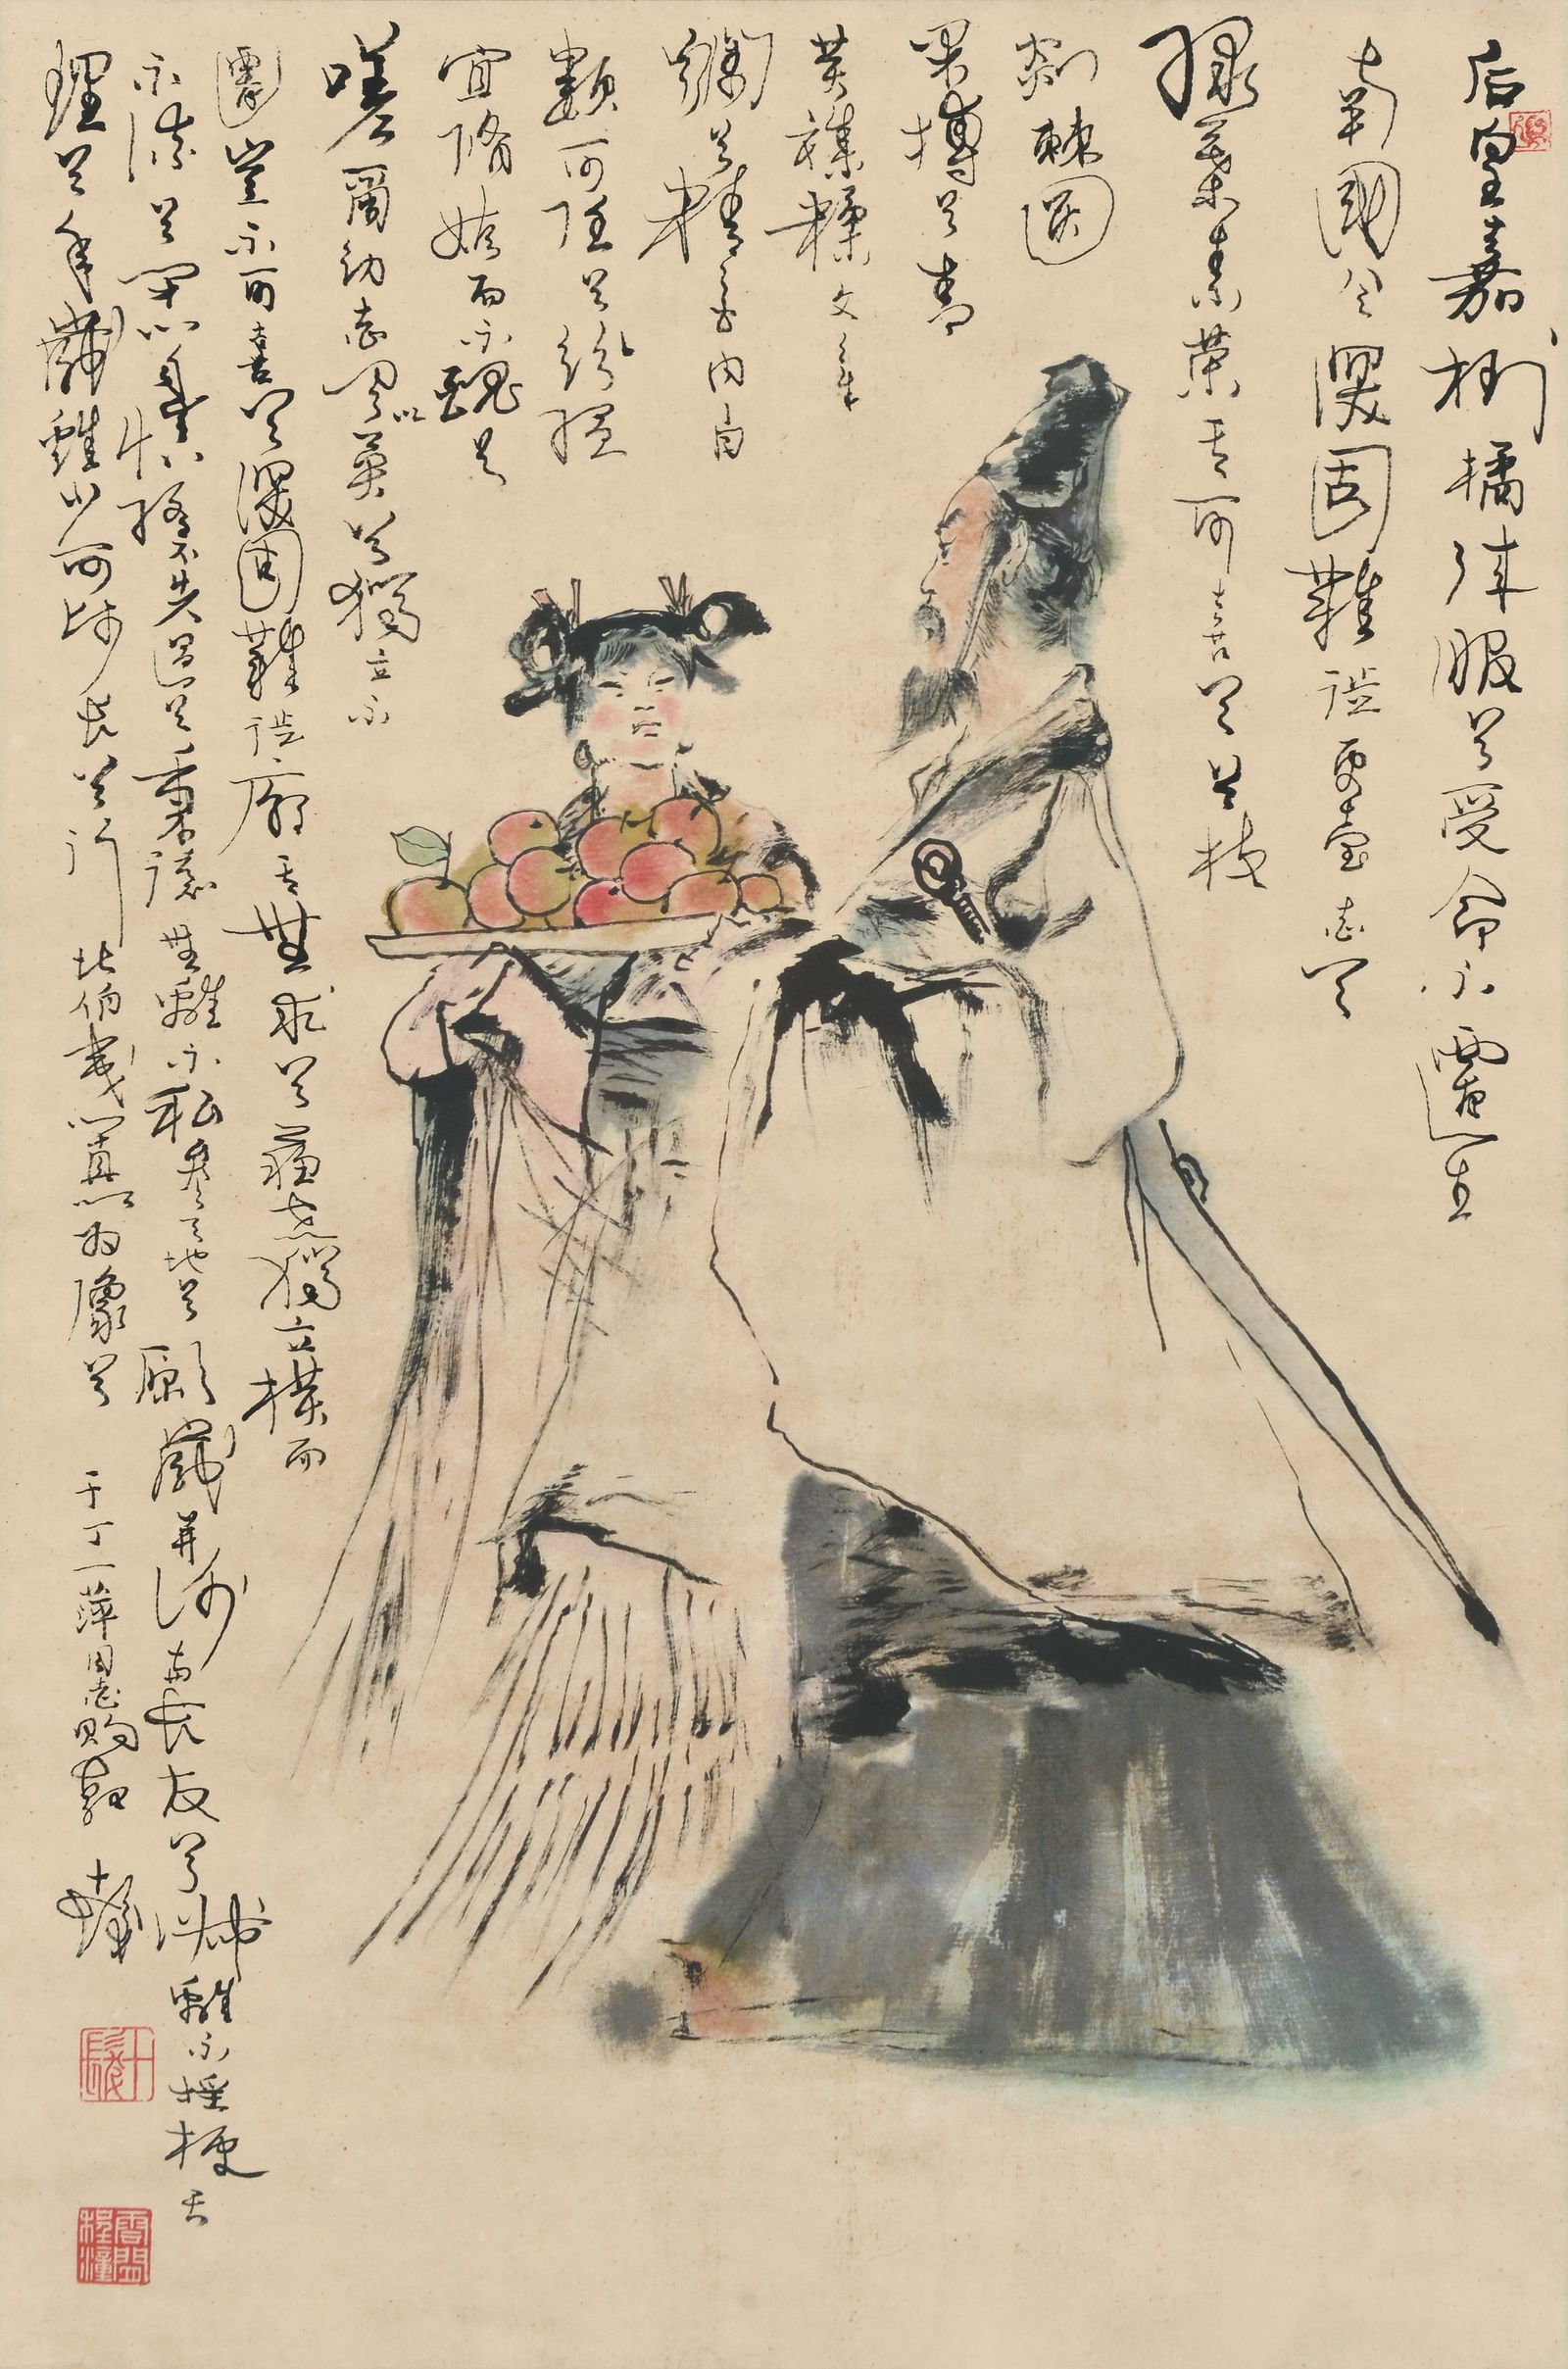 后皇嘉樹橘徠服兮受命不遷生
南國兮深固難徙更壹志兮
綠葉素榮其可喜兮曾枝
剡棘圓
果摶兮青
黃雜糅文章
爛兮精色內白
類可任兮紛縕
宜脩姱而不醜兮
嗟爾幼志有以異兮獨立不
遷豈不可喜兮深固難徙廓其無求兮蘇世獨立橫而
不流兮閉心自慎終不失過兮秉德無私參天地兮願歲并謝與長友兮淑離不淫梗其
理兮年歲雖少可師長兮行比伯夷置以為像兮 十髮
十髮